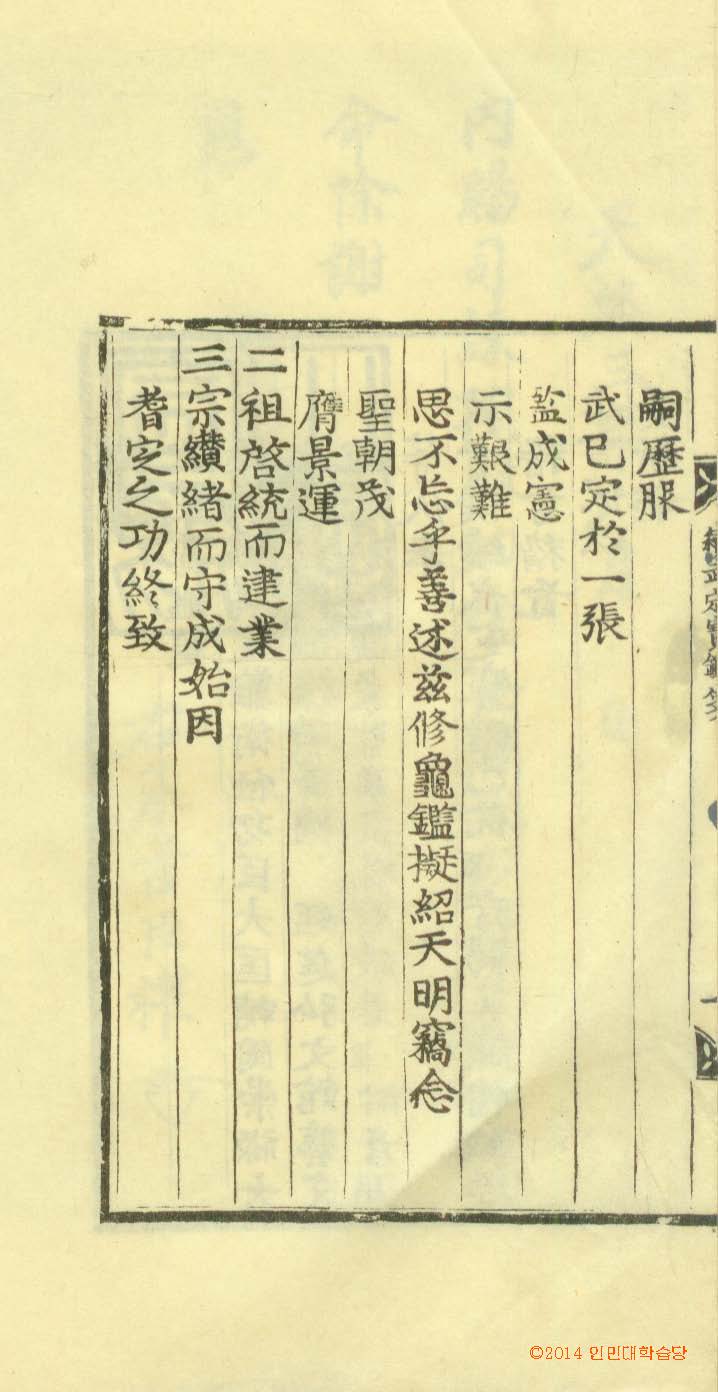 續武定寶鑑箋
嗣歷服
武已定於一張
監成憲
示艱難
思不忘乎善述兹修龜鑑擬紹天明竊念
聖朝茂
膺景運
二祖啓統而建業
三宗纘緖而守成始因
耆定之功終致
©2014 인민대학습당